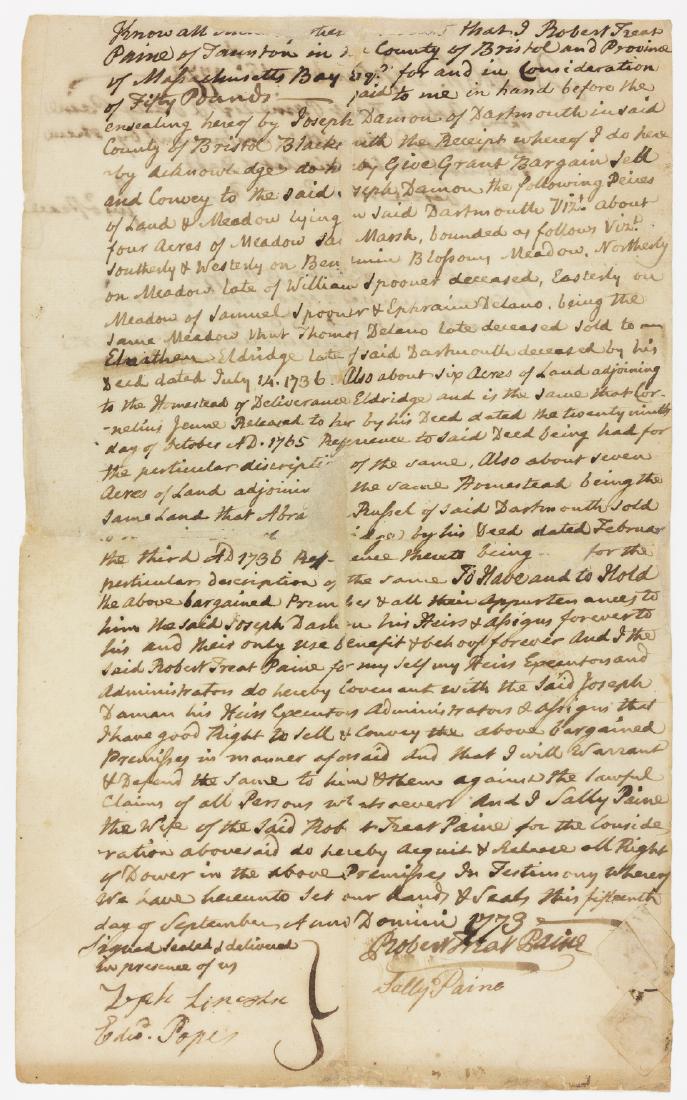 Know all that I Robert Treat
Paine of Taunton in the County of Bristol and Province
of Massachusetts Bay Esqr. for and in Consideration
of Fifty Pounds paid to me in hand before the
ensealing hereof by Joseph Damon of Dartmouth in said
County of Bristol Blacksmith the Receipt whereof I do here
-by acknowledge do hereby Give Grant Bargain Sell
and Convey to the said Joseph Damon the following Peices
of Land & Meadow lying in said Dartmouth Vizt. about
four Acres of Meadow Salt Marsh, bounded as follows Vizt.
Southerly & Westerly on Benjamin Blossoms Meadow, Northerly
on Meadow late of William Spooner deceased, Easterly on
Meadow of Samuel Spooner & Ephraim Delano, being the
same Meadow that Thomas Delano late deceased sold to
Elnathan Eldridge late of said Dartmouth deceased by his
Deed dated July 14. 1736. Also about six Acres of Land adjoining
to the Homestead of Deliverance Eldridge and is the same that Cor-
-nelius Jenne Released to her by his Deed dated the twenty ninth
day of October AD. 1765 Reference to said Deed being had for
the particular discription of the same, Also about seven
Acres of Land adjoining the same Homestead being the
same Land that Abra Russel of said Dartmouth sold
by his Deed dated Februar
the third AD 1736 Ref- ence thereto being for the
particular Description of the same To Have and to Hold
the above bargained Premises & all their Appurtenances to
him the said Joseph Damon his Heirs & Assigns forever to
his and their only use benefit & behoof forever And I the
said Robert Treat Paine for my self my Heirs Executors and
Administrators do hereby Covenant with the Said Joseph
Daman his Heirs Executors Administrators & Assigns that
I have good Right to Sell & Convey the above bargained
Premisses in manner aforesaid And that I will Warrant
& Defend the Same to him & them against the lawful
Claims of all Persons whatsoever And I Sally Paine
the Wife of the Said Robt Treat Paine for the Conside
-ration abovesaid do hereby Acquit & Release all Right
of Dower in the above Premisses In Testimony whereof
We have hereunto Set our hands & Seals this fifteenth
day of September Anno Domini 1773
Signed Sealed & delivered
in presence of us
Robert Treat Paine
Sally Paine
Zeph Lincoln
Edwd. Pope